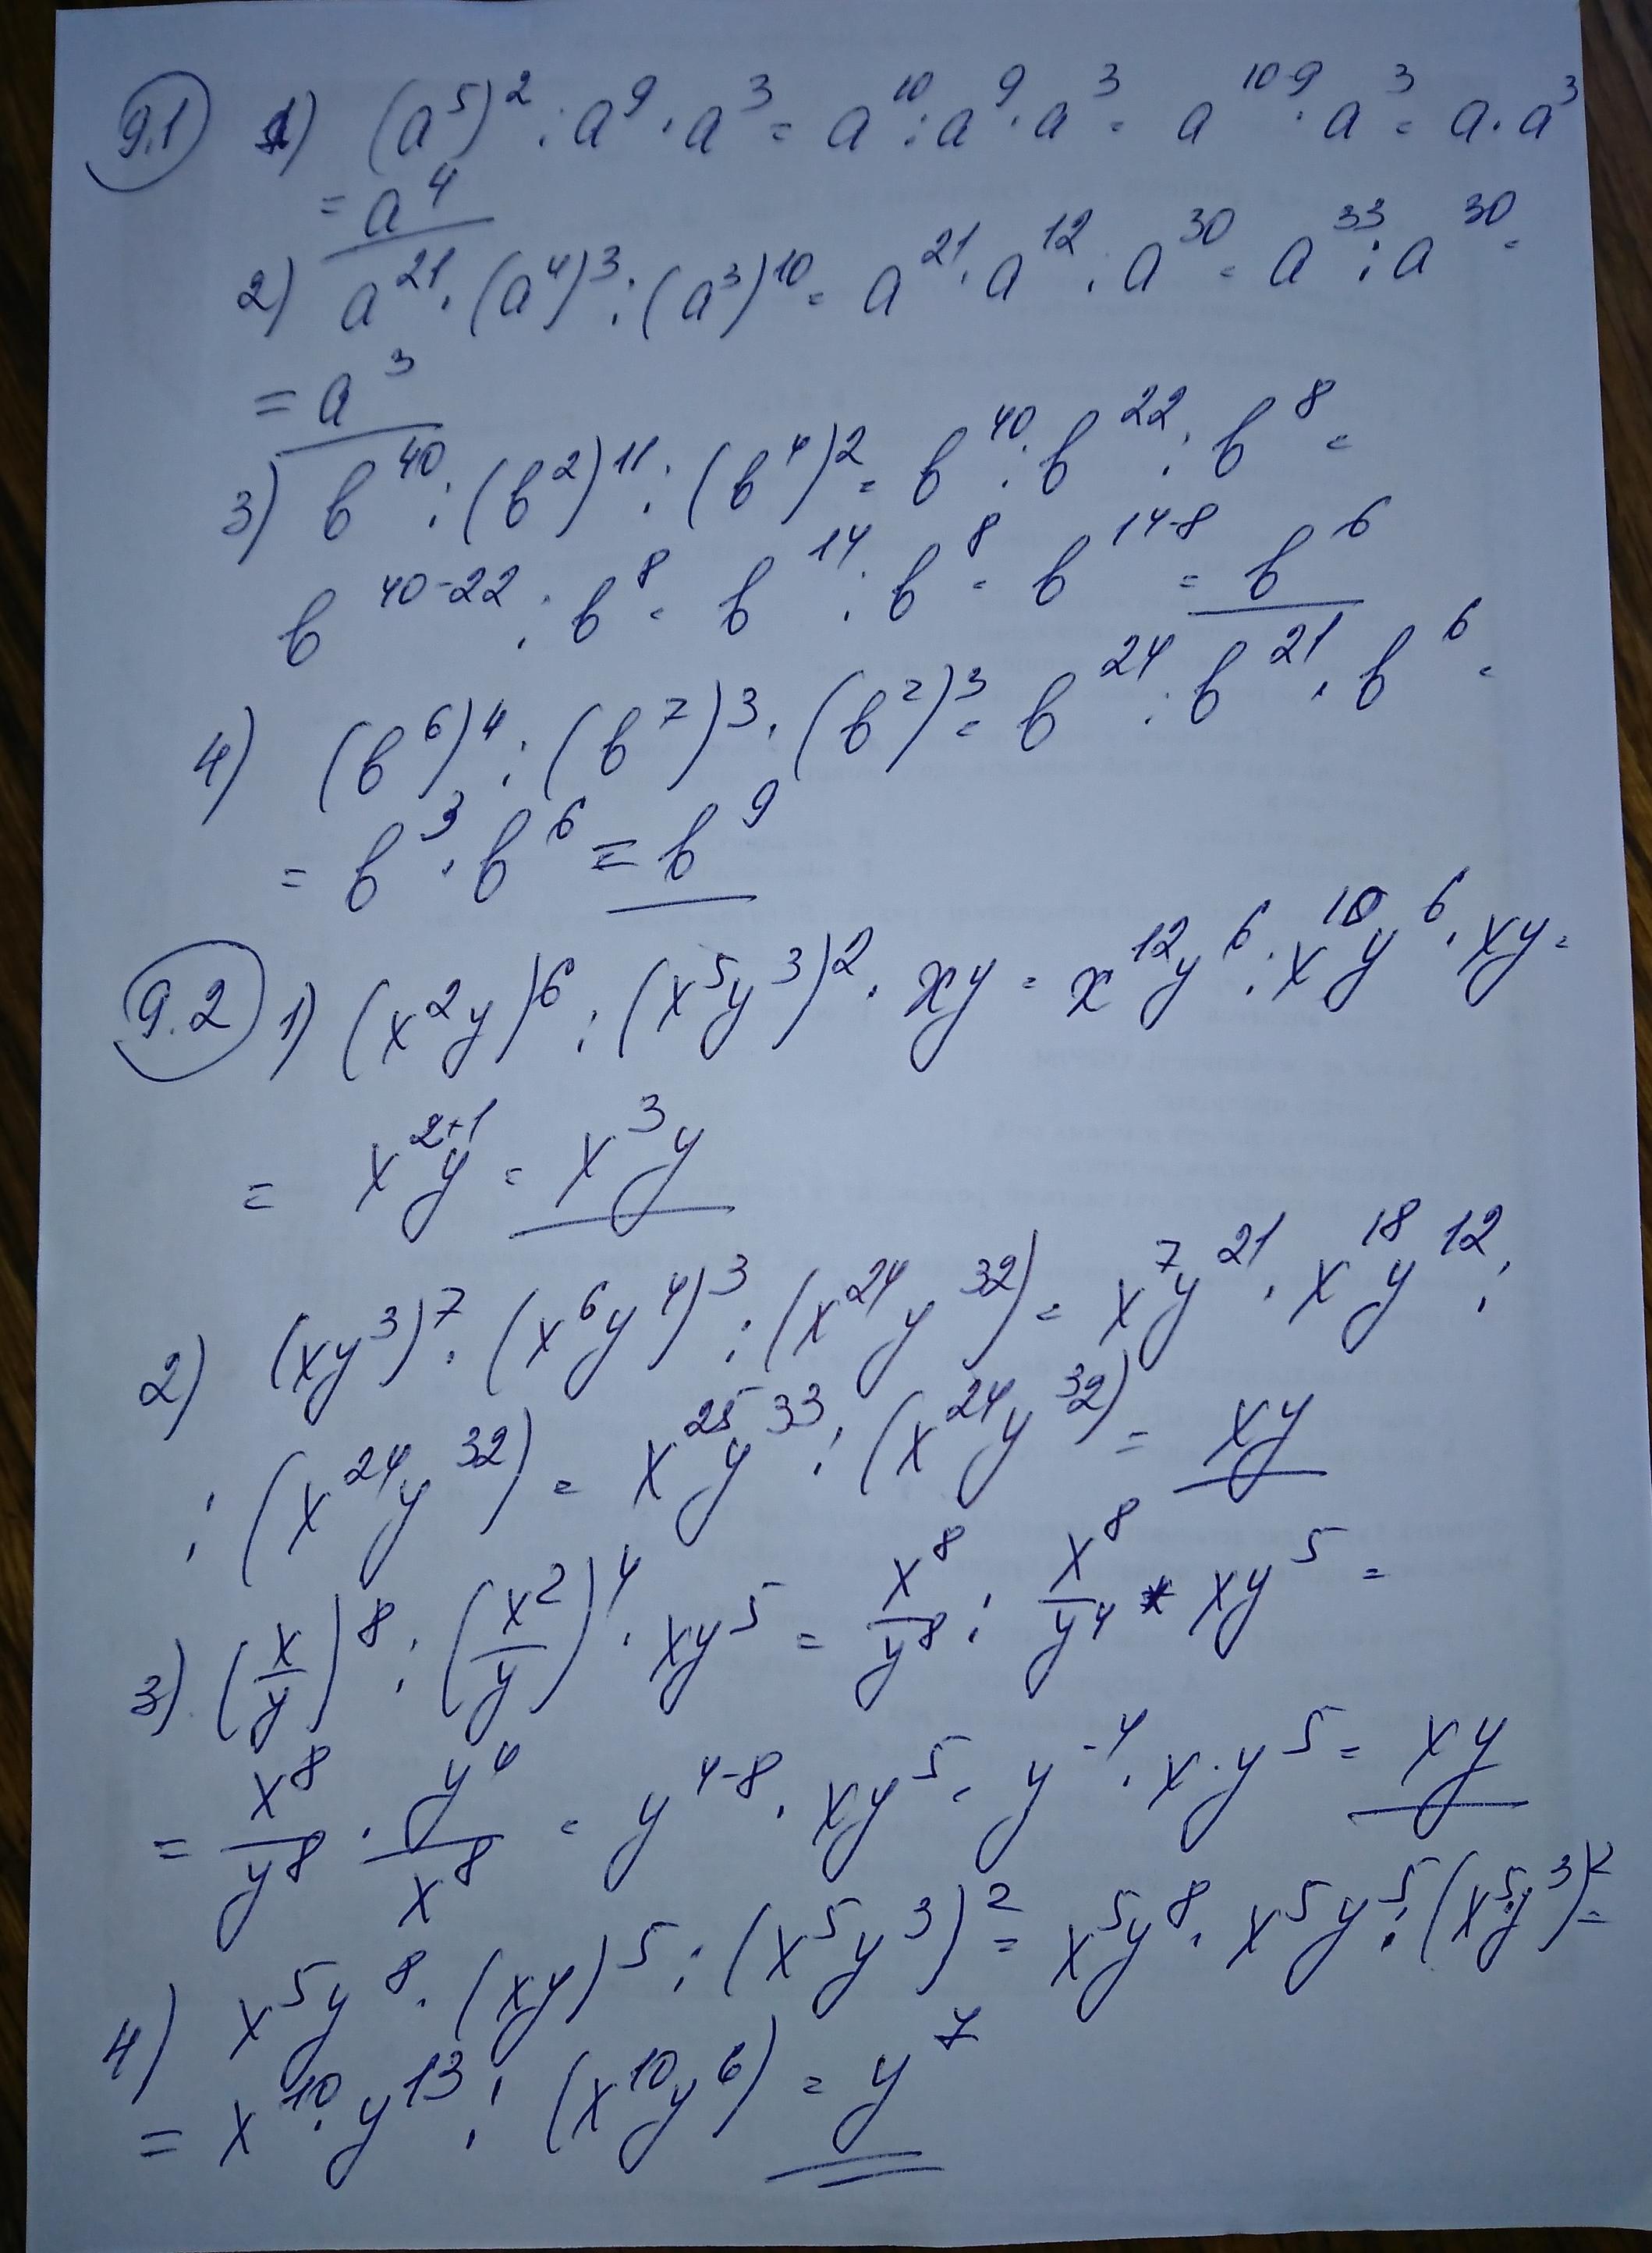 9.1 1) (a⁵)² : a⁹ · a³ = a¹⁰ : a⁹ · a³ = a¹⁰⁻⁹ · a³ = a · a³
= a⁴
2) a²¹ · (a⁴)³ : (a³)¹⁰ = a²¹ · a¹² : a³⁰ = a³³ : a³⁰ =
= a³
3) b⁴⁰ : (b²)¹¹ : (b⁴)² = b⁴⁰ : b²² : b⁸ =
b⁴⁰⁻²² : b⁸ = b¹⁴ : b⁸ = b¹⁴⁻⁸ = b⁶
4) (b⁶)⁴ : (b⁷)³ · (b²)³ = b²⁴ : b²¹ · b⁶ =
= b³ · b⁶ = b⁹
9.2 1) (x²y)⁶ : (x⁵y³)² · xy = x¹²y⁶ : x¹⁰y⁶ · xy =
= x²⁺¹y = x³y
2) (xy³)⁷ · (x⁶y⁴)³ : (x²⁴y³²) = x⁷y²¹ · x¹⁸y¹² :
: (x²⁴y³²) = x²⁵y³³ : (x²⁴y³²) = xy
3) (x/y)⁸ : (x²/y)⁴ · xy⁵ = x⁸/y⁸ : x⁸/y⁴ * xy⁵ =
= x⁸/y⁸ · y⁴/x⁸ = y⁴⁻⁸ · xy⁵ = y⁻⁴ · x · y⁵ = xy
4) x⁵y⁸ · (xy)⁵ : (x⁵y³)² = x⁵y⁸ · x⁵y⁵ : (x⁵y³)² =
= x¹⁰ · y¹³ : (x¹⁰y⁶) = y⁷